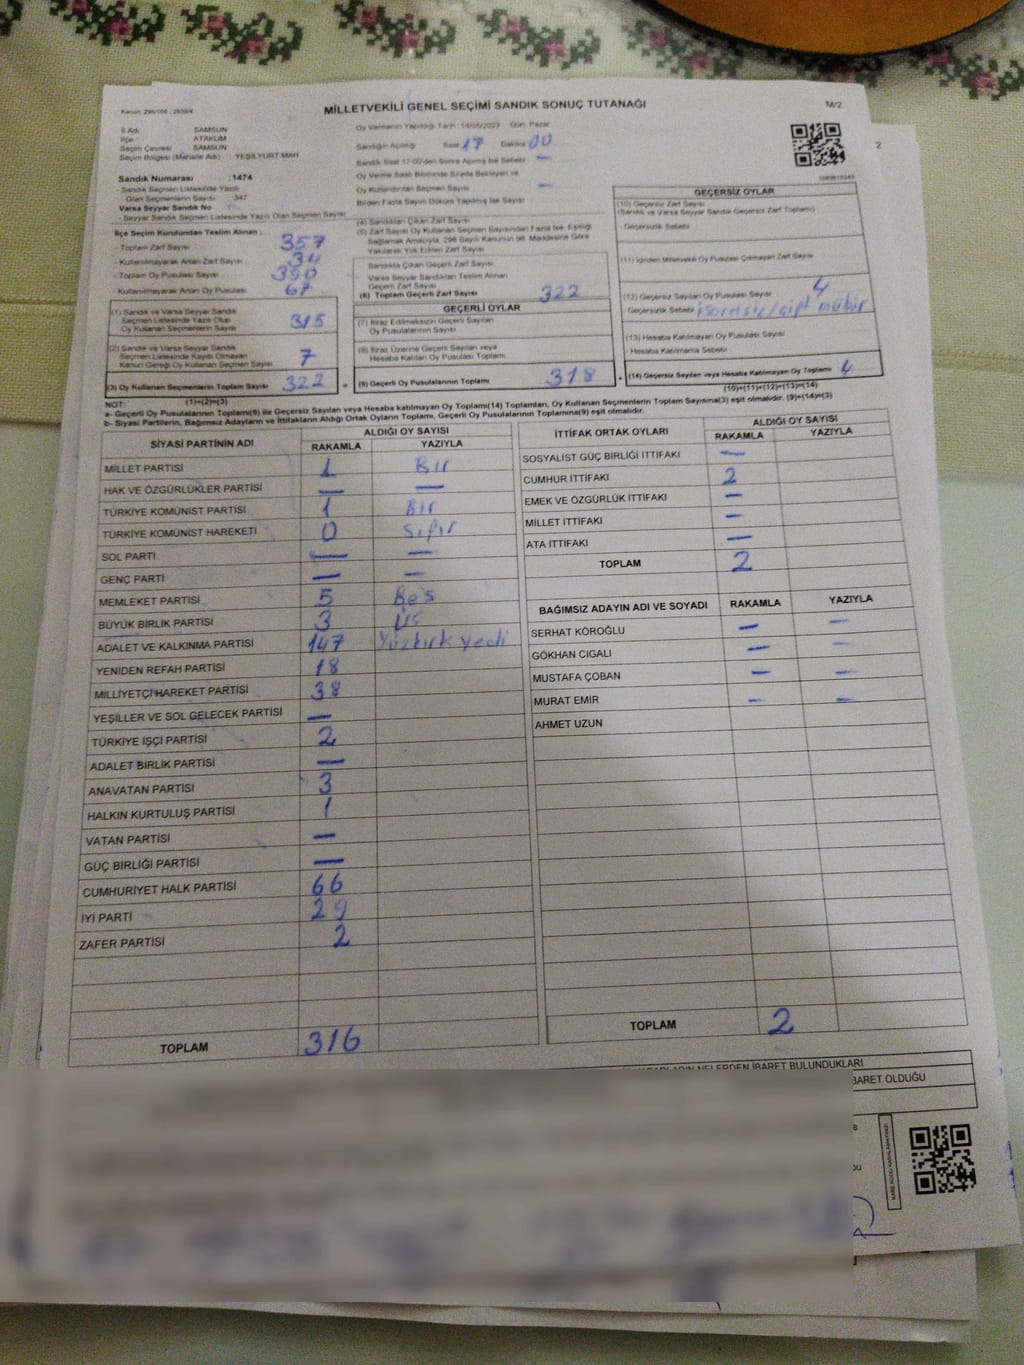 Kanun: 298/105 , 2839/4
MİLLETVEKİLİ GENEL SEÇİMİ SANDIK SONUÇ TUTANAĞI
M/2
İl Adı SAMSUN
İlçe ATAKUM
Seçim Çevresi SAMSUN
Seçim Bölgesi (Mahalle Adı) YEŞİLYURT MAH
Sandık Numarası : 1474
- Sandık Seçmen Listesinde Yazılı
Olan Seçmenlerin Sayısı :347
Varsa Seyyar Sandık No
- Seyyar Sandık Seçmen Listesinde Yazılı Olan Seçmen Sayısı
İlçe Seçim Kurulundan Teslim Alınan :
- Toplam Zarf Sayısı 357
- Kullanılmayarak Artan Zarf Sayısı 34
- Toplam Oy Pusulası Sayısı
- Kullanılmayarak Artan Oy Pusulası 67
(1) Sandık ve Varsa Seyyar Sandık
Seçmen Listesinde Yazılı Olup
Oy Kullanan Seçmenlerin Sayısı 315
(2) Sandık ve Varsa Seyyar Sandık
Seçmen Listesinde Kayıtlı Olmayan
Kanun Gereği Oy Kullanan Seçmen Sayısı 7
(3) Oy Kullanan Seçmenlerin Toplam Sayısı 322
(1)+(2)=(3)
Oy Vermenin Yapıldığı Tarih :14/05/2023 Gün: Pazar
Sandığın Açılışı Saat 17 Dakika 00
Sandık Saat 17:00'den Sonra Açılmış İse Sebebi —
Oy Verme Saati Bitiminde Sırada Bekleyen ve
Oy Kullandırılan Seçmen Sayısı —
Birden Fazla Sayım Döküm Yapılmış İse Sayısı
(4) Sandıktan Çıkan Zarf Sayısı
(5) Zarf Sayısı Oy Kullanan Seçmen Sayısından Fazla İse, Eşitliği
Sağlamak Amacıyla, 298 Sayılı Kanunun 98. Maddesine Göre
Yakılarak Yok Edilen Zarf Sayısı
Sandıkta Çıkan Geçerli Zarf Sayısı
Varsa Seyyar Sandıktan Teslim Alınan
Geçerli Zarf Sayısı
(6) Toplam Geçerli Zarf Sayısı 322
GEÇERLİ OYLAR
(7) İtiraz Edilmeksizin Geçerli Sayılan
Oy Pusulalarının Sayısı
(8) İtiraz Üzerine Geçerli Sayılan veya
Hesaba Katılan Oy Pusulası Toplamı
(9) Geçerli Oy Pusulalarının Toplamı 318
2
GEÇERSİZ OYLAR
(10) Geçersiz Zarf Sayısı
(Sandık ve Varsa Seyyar Sandık Geçersiz Zarf Toplamı)
- Geçersizlik Sebebi
(11) İçinden Milletvekili Oy Pusulası Çıkmayan Zarf Sayısı
(12) Geçersiz Sayılan Oy Pusulası Sayısı 4
Geçersizlik Sebebi işaretsiz/çift mühür
(13) Hesaba Katılmayan Oy Pusulası Sayısı
- Hesaba Katılmama Sebebi
(14) Geçersiz Sayılan veya Hesaba Katılmayan Oy Toplamı 4
(10)+(11)+(12)+(13)=(14)
NOT:
a- Geçerli Oy Pusulalarının Toplamı(9) ile Geçersiz Sayılan veya Hesaba katılmayan Oy Toplamı(14) Toplamları, Oy Kullanan Seçmenlerin Toplam Sayısına(3) eşit olmalıdır. (9)+(14)=(3)
b- Siyasi Partilerin, Bağımsız Adayların ve İttifakların Aldığı Ortak Oyların Toplamı, Geçerli Oy Pusulalarının Toplamına(9) eşit olmalıdır.
SİYASİ PARTİNİN ADI ALDIĞI OY SAYISI
RAKAMLA YAZIYLA
MİLLET PARTİSİ 1 Bir
HAK VE ÖZGÜRLÜKLER PARTİSİ — —
TÜRKİYE KOMÜNİST PARTİSİ 1 Bir
TÜRKİYE KOMÜNİST HAREKETİ 0 Sıfır
SOL PARTİ — —
GENÇ PARTİ — —
MEMLEKET PARTİSİ 5 Beş
BÜYÜK BİRLİK PARTİSİ 3 Üç
ADALET VE KALKINMA PARTİSİ 147 Yüzkırk yedi
YENİDEN REFAH PARTİSİ 18
MİLLİYETÇİ HAREKET PARTİSİ 38
YEŞİLLER VE SOL GELECEK PARTİSİ —
TÜRKİYE İŞÇİ PARTİSİ 2
ADALET BİRLİK PARTİSİ —
ANAVATAN PARTİSİ 3
HALKIN KURTULUŞ PARTİSİ 1
VATAN PARTİSİ —
GÜÇ BİRLİĞİ PARTİSİ —
CUMHURİYET HALK PARTİSİ 66
İYİ PARTİ 29
ZAFER PARTİSİ 2
TOPLAM 316
İTTİFAK ORTAK OYLARI ALDIĞI OY SAYISI
RAKAMLA YAZIYLA
SOSYALİST GÜÇ BİRLİĞİ İTTİFAKI —
CUMHUR İTTİFAKI 2
EMEK VE ÖZGÜRLÜK İTTİFAKI —
MİLLET İTTİFAKI —
ATA İTTİFAKI —
TOPLAM 2
BAĞIMSIZ ADAYIN ADI VE SOYADI RAKAMLA YAZIYLA
SERHAT KÖROĞLU — —
GÖKHAN CIGALI — —
MUSTAFA ÇOBAN — —
MURAT EMİR — —
AHMET UZUN
TOPLAM 2
NELERDEN İBARET BULUNDUKLARI
BARET OLDUĞU